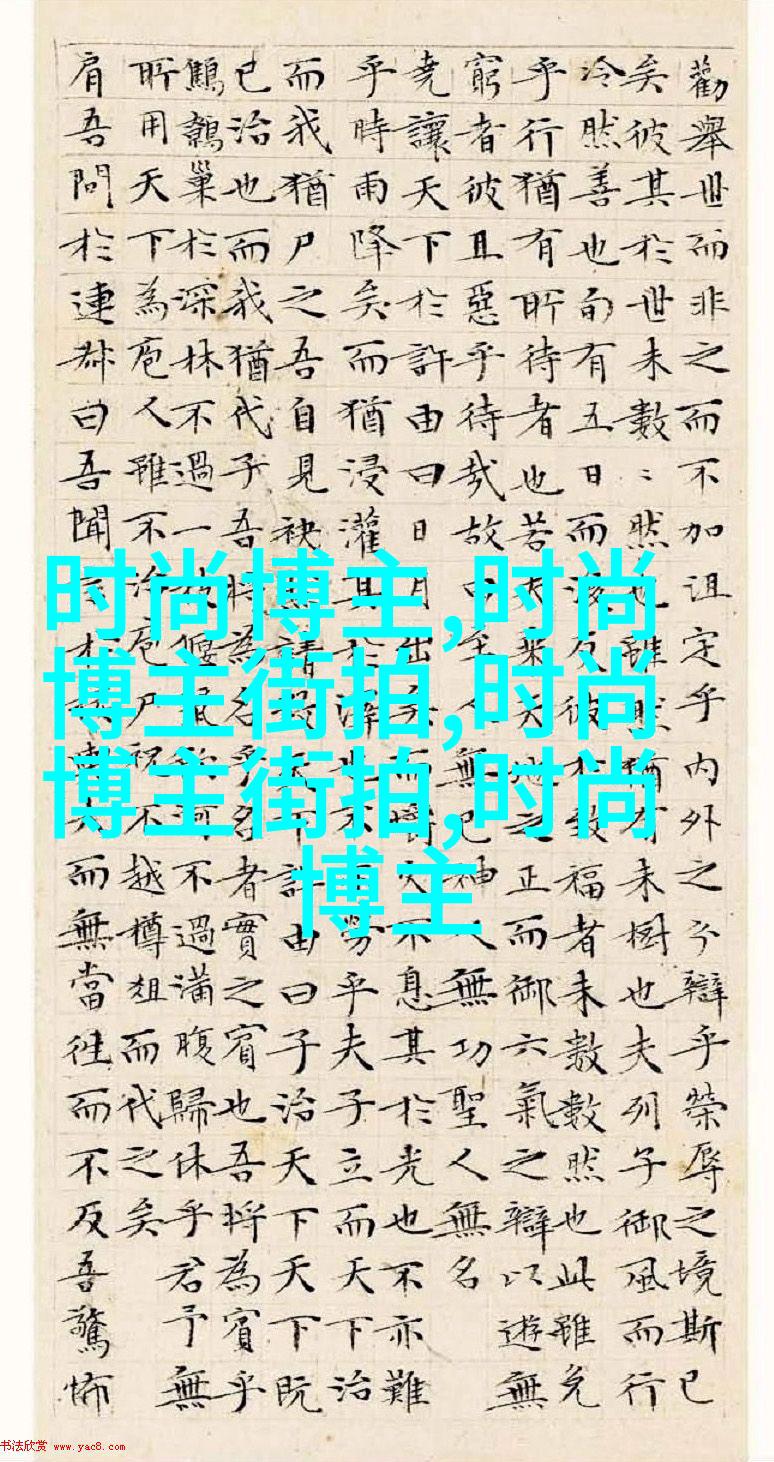 勸舉世而非之而不加沮定乎內外之分辯乎榮辱之境斯已
矣彼其於世未數〻然也雖然猶有未樹也夫列子御風而行
冷然善也旬有五日而後反彼於致福者未數數然也此雖免
乎行猶有所待者也若夫乘天地之正而御六氣之辯以遊無
窮者彼且惡乎待哉故曰至人無已神人無功聖人無名
堯讓天下於許由曰日月出矣而爝火不息其於光也不亦難
乎時雨降矣而猶浸灌其於澤也不亦勞乎夫子立而天下治
而我猶尸之吾自見缺然請致天下許由曰子治天下天下既
已治也而我猶代子吾將為名乎名者實之賓也吾將為賓乎
鷦鷯巢於深林不過一枝偃鼠飲河不過滿腹歸休乎君予無
所用天下為庖人雖不治庖尸祝不越樽俎而代之矣
肩吾問於連叔曰吾聞言於接輿大而無當往而不反吾驚怖
时尚博主,时尚
博主街拍,时尚
博主街拍,时尚
博主
书法欣赏 www.yac8.com